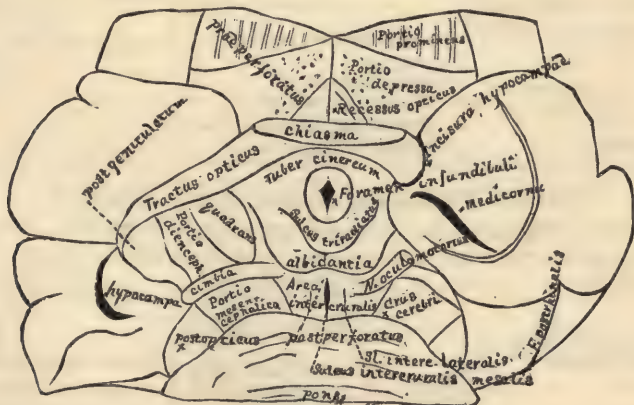 praeperforatus
Portio
prominens
Portio
depressa
Recessus opticus
Incisura hypocampae
Chiasma
postgeniculatum
Tractus opticus
Tuber cinereum
Foramen infundibuli
Medicornu
quadrans
Sulcus triradiatus
Portio
dienceph.
albidantia
N. oculomotorius
cimbia
hypocampa
Portio
mesen-
cephalica
Area
intercruralis
Crus
cerebri
F. ectorhinalis
postopticus
postperforatus
Sl. intere. lateralis
Sulcus intercruralis mesalis
pons